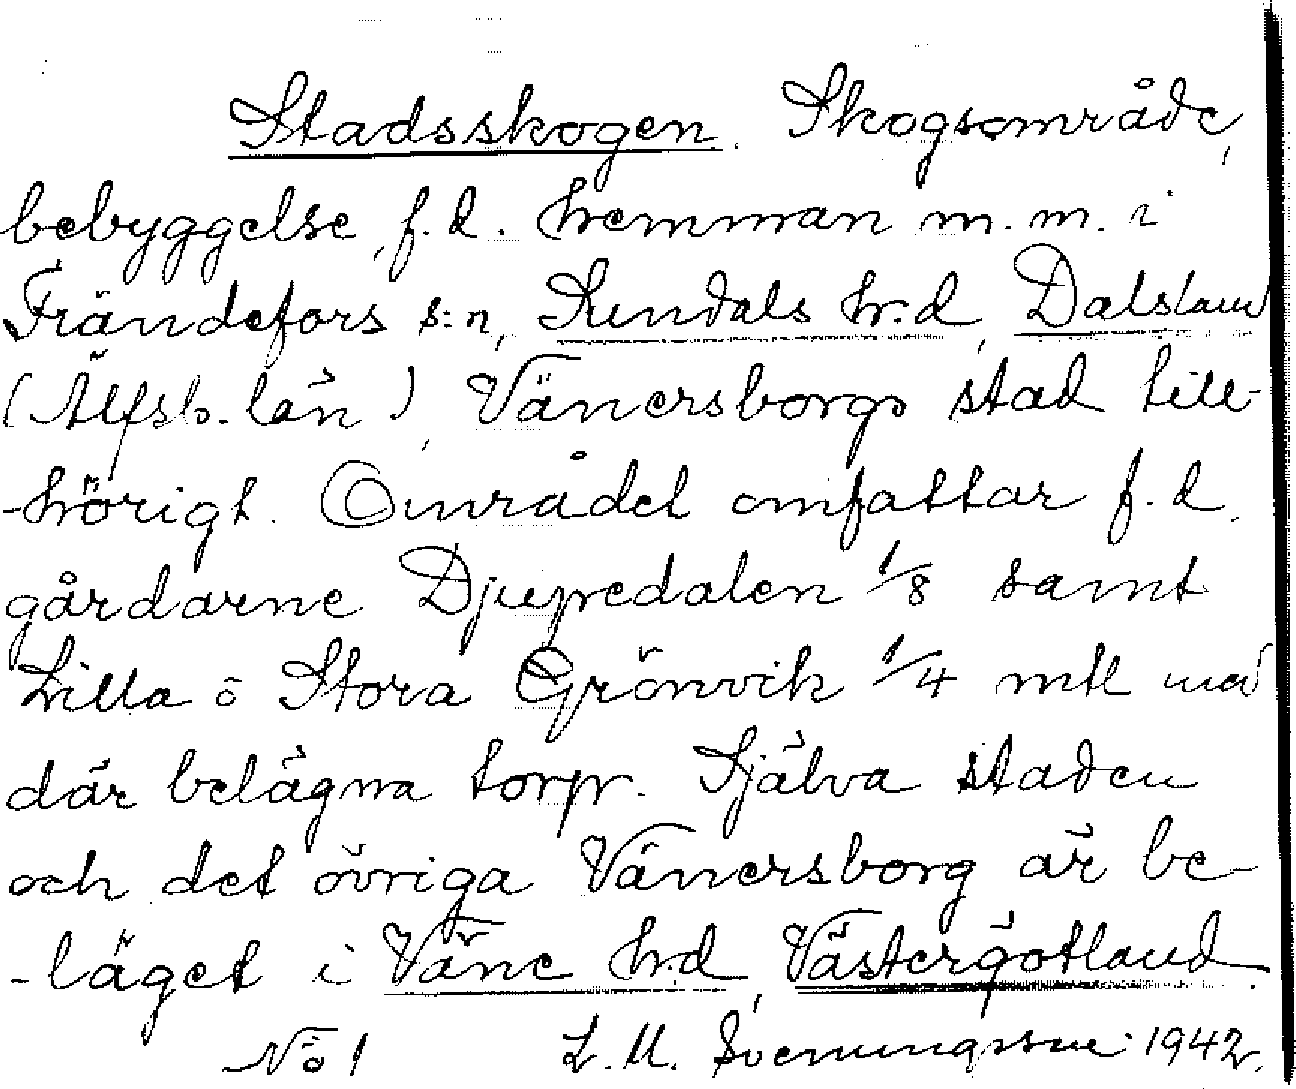 Stadsskogen. Skogsområde,
bebyggelse, f.d. hemman m.m. i
Frändefors s:n, Sundals h:d, Dalsland
(Älfsb. län), Vänersborgs stad till-
-hörigt. Området omfattar f.d.
gårdarne Djupedalen 1/8 samt
Lilla o Stora Grönvik 1/4 mtl med
där belägna torp. Själva staden
och det övriga Vänersborg är be-
-läget i Väne h:d, Västergötland.
No 1 L. M. Svenungsson 1942.